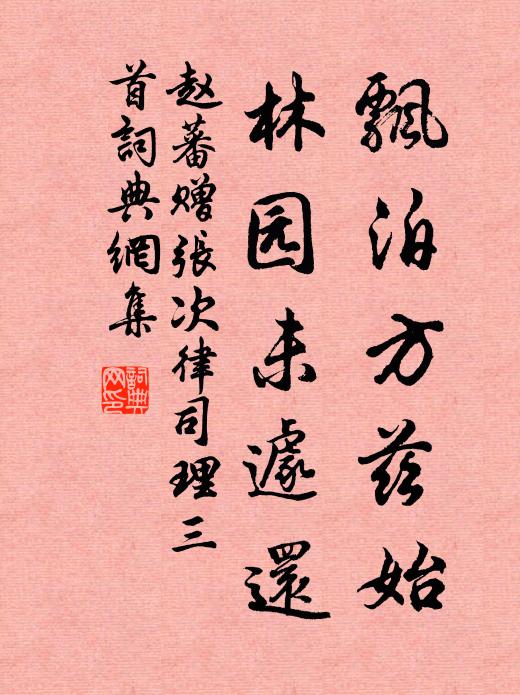 飄泊方兹始
林园未遽還
赵蕃赠張次律司理三
首詞典網集
詞典网印